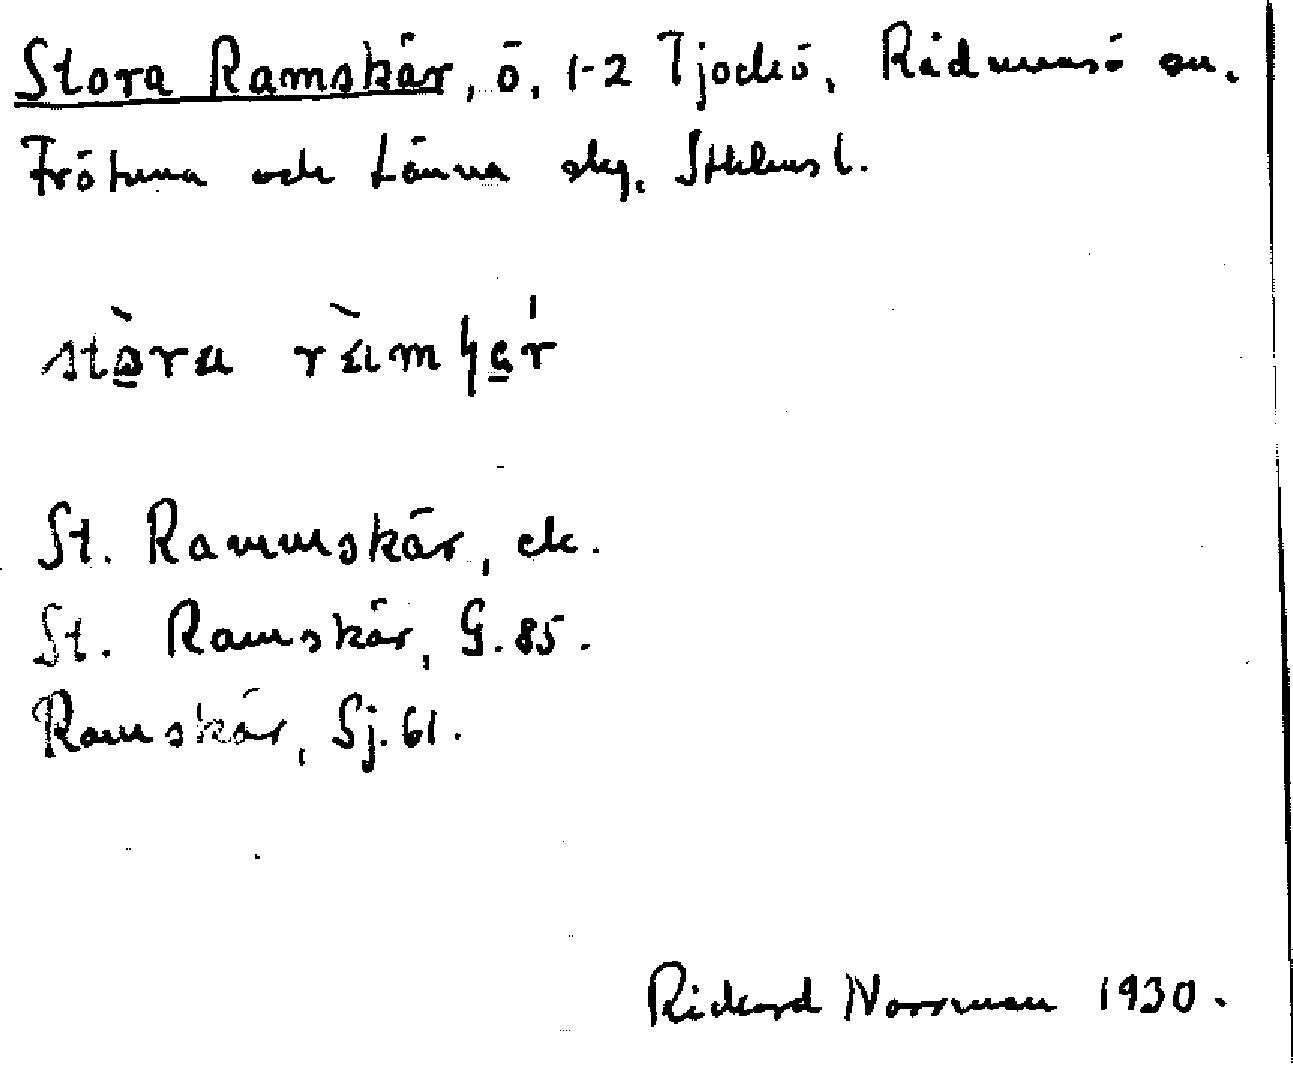 Stora Ramskär, ö, 1-2 Tjockö, Rådmansö sn.
Frötuna och Länna skg. Sthlms l.
stòra ràmʂɛ́r
St. Rammskär, ek.
St. Ramskär, G. 85.
Ramskär, Sj. 61.
Rickard Norrman 1930.